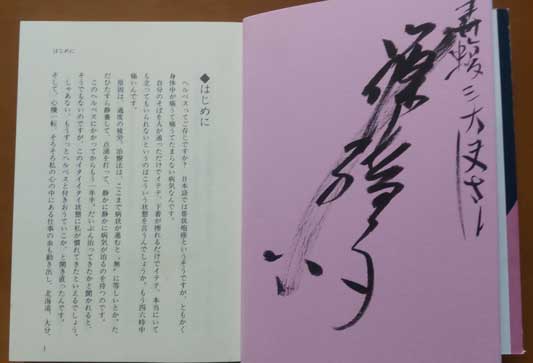 はじめに
◆はじめに
ヘルペスってご存じですか？　日本語では帯状疱疹というそうですが、ともかく
身体中が痛うて痛うてたまらない病気なんです。
自分のそばを人が通っただけでイテテ、下着が擦れるだけでイテテ、本当にいて
も立ってもいられないというのはこういう状態を言うんでしょうか。もう四六時中
痛いんです。
原因は、過度の疲労。治療法は、ここまで病状が進むと〝無〟に等しいとか。た
だひたすら静養して、点滴を打って、静かに静かに病気が治るのを待つのです。
このヘルペスにかかってからもう一年半。だいぶん治ってきたかと聞かれると、
そうでもないのですが、このイタイイタイ状態に私が慣れてきたといえるでしょう。
しゃあない、もうずっとヘルペスと付きおうていこか、と開き直ったんです。
そして、心機一転、そろそろ私の心の中にある仕事の虫も動き出し、北海道、大分、